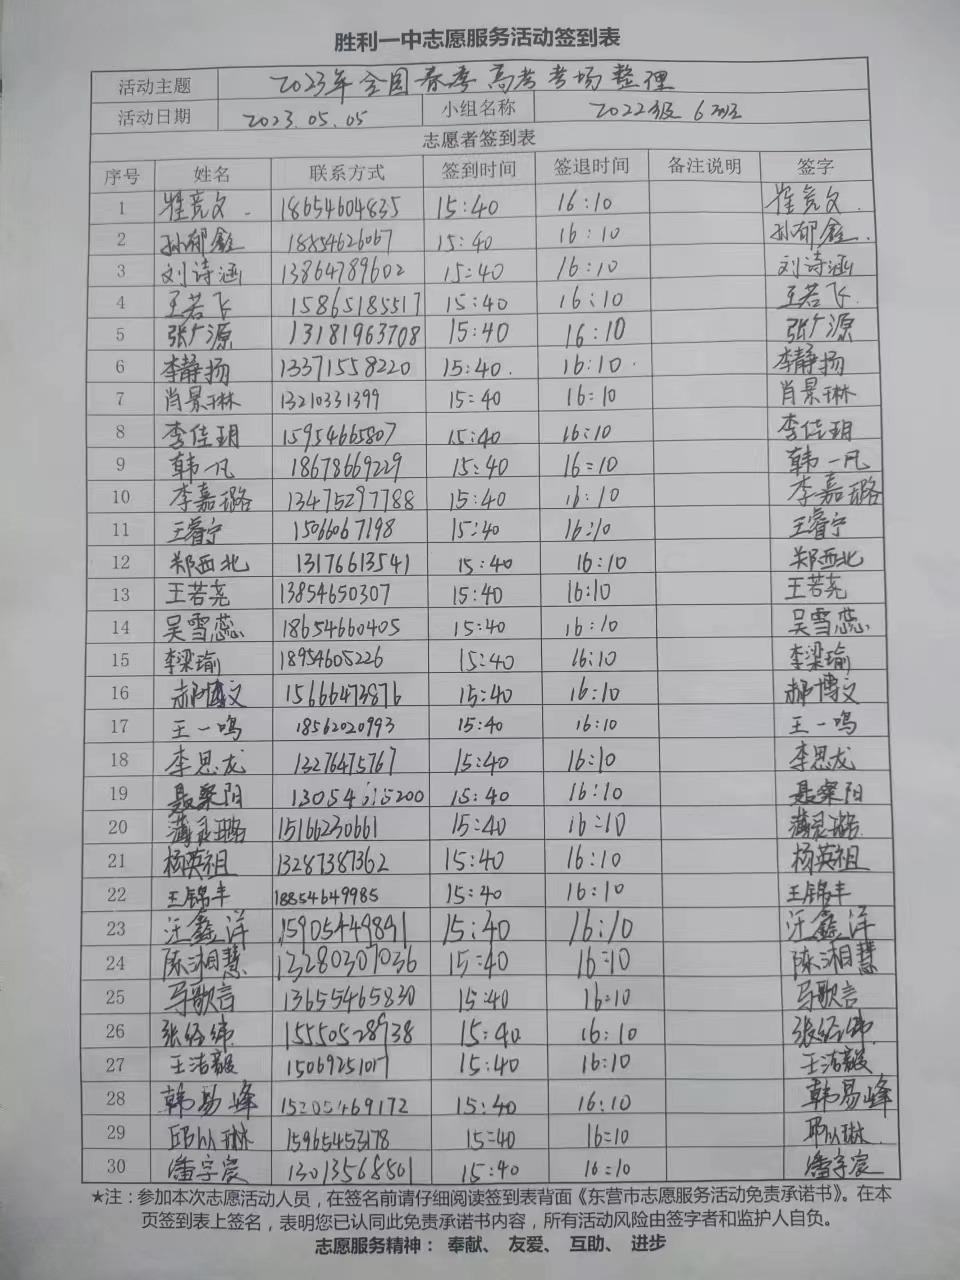 胜利一中志愿服务活动签到表
活动主题 2023年全国春季高考考场整理
活动日期 2023.05.05 小组名称 2022级6班
志愿者签到表
序号 姓名 联系方式 签到时间 签退时间 备注说明 签字
1 崔竞文 18654604835 15:40 16:10 崔竞文
2 孙郁鑫 18854626067 15:40 16:10 孙郁鑫
3 刘诗涵 13864789602 15:40 16:10 刘诗涵
4 王若飞 15865185517 15:40 16:10 王若飞
5 张广源 13181963708 15:40 16:10 张广源
6 李静扬 13371558220 15:40 16:10 李静扬
7 肖景琳 13210331399 15:40 16:10 肖景琳
8 李佳玥 15954665807 15:40 16:10 李佳玥
9 韩一凡 18678669229 15:40 16:10 韩一凡
10 李嘉璐 13475297788 15:40 16:10 李嘉璐
11 王睿宁 15066067198 15:40 16:10 王睿宁
12 郑西北 13176613541 15:40 16:10 郑西北
13 王若尧 13854650307 15:40 16:10 王若尧
14 吴雪蕊 18654660405 15:40 16:10 吴雪蕊
15 李梁瑜 18954605226 15:40 16:10 李梁瑜
16 郝博文 15666473876 15:40 16:10 郝博文
17 王一鸣 18562020993 15:40 16:10 王一鸣
18 李思龙 13276475767 15:40 16:10 李思龙
19 聂燊阳 15:40 16:10 聂燊阳
20 15166230661 15:40 16:10
21 杨英祖 13287387362 15:40 16:10 杨英祖
22 王锦丰 18854649985 15:40 16:10 王锦丰
23 汪鑫洋 15905449841 15:40 16:10 汪鑫洋
24 陈湘慧 13280307036 15:40 16:10 陈湘慧
25 马歌言 13655465830 15:40 16:10 马歌言
26 张经纬 15550528938 15:40 16:10 张经纬
27 王洁毅 15069251017 15:40 16:10 王洁毅
28 韩易峰 15205469172 15:40 16:10 韩易峰
29 邱以琳 15965453178 15:40 16:10 邱以琳
30 潘宇宸 13013568501 15:40 16:10 潘宇宸
★注：参加本次志愿活动人员，在签名前请仔细阅读签到表背面《东营市志愿服务活动免责承诺书》。在本
页签到表上签名，表明您已认同此免责承诺书内容，所有活动风险由签字者和监护人自负。
志愿服务精神： 奉献、 友爱、 互助、 进步